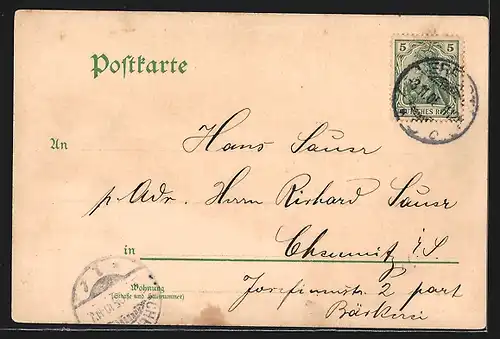 Postkarte
5 5
DEUTSCHES REICH
An Hans Sauer
p. Adr. Herrn Richard Sauer
in Chemnitz i/S.
Wohnung
(Straße und Hausnummer)
Josefinenstr. 2 part
Bäckerei